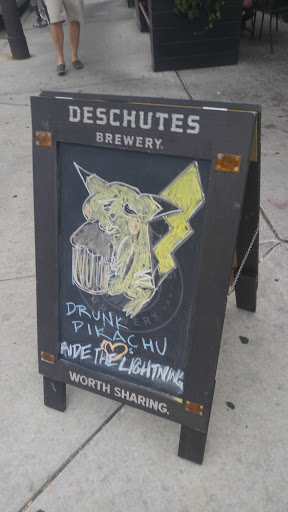 DESCHUTES
BREWERY.
DRUNK
PIKACHU
RIDE THE LIGHTNING
WORTH SHARING.